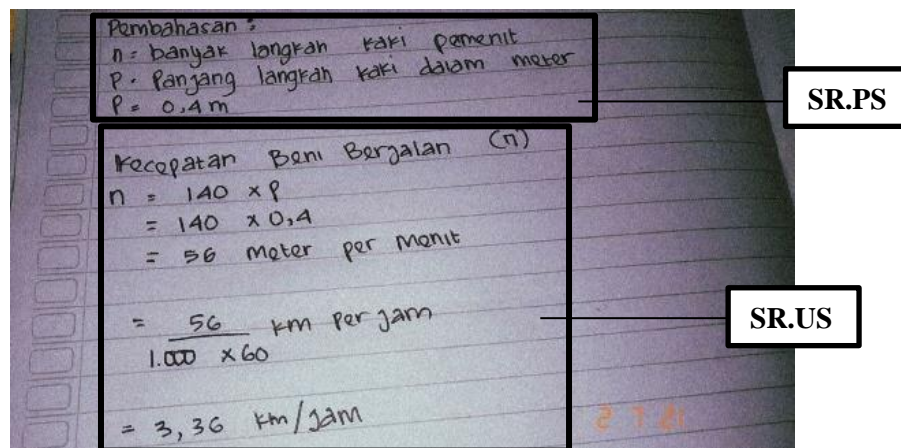 Pembahasan :
n = banyak langkah kaki pemenit
P. Panjang langkah kaki dalam meter
P = 0,4 m
SR.PS
Kecepatan Beni Berjalan (n)
n = 140 x P
= 140 x 0,4
= 56 meter per menit
SR.US
= 56 km per jam
1.000 x 60
= 3,36 km/jam